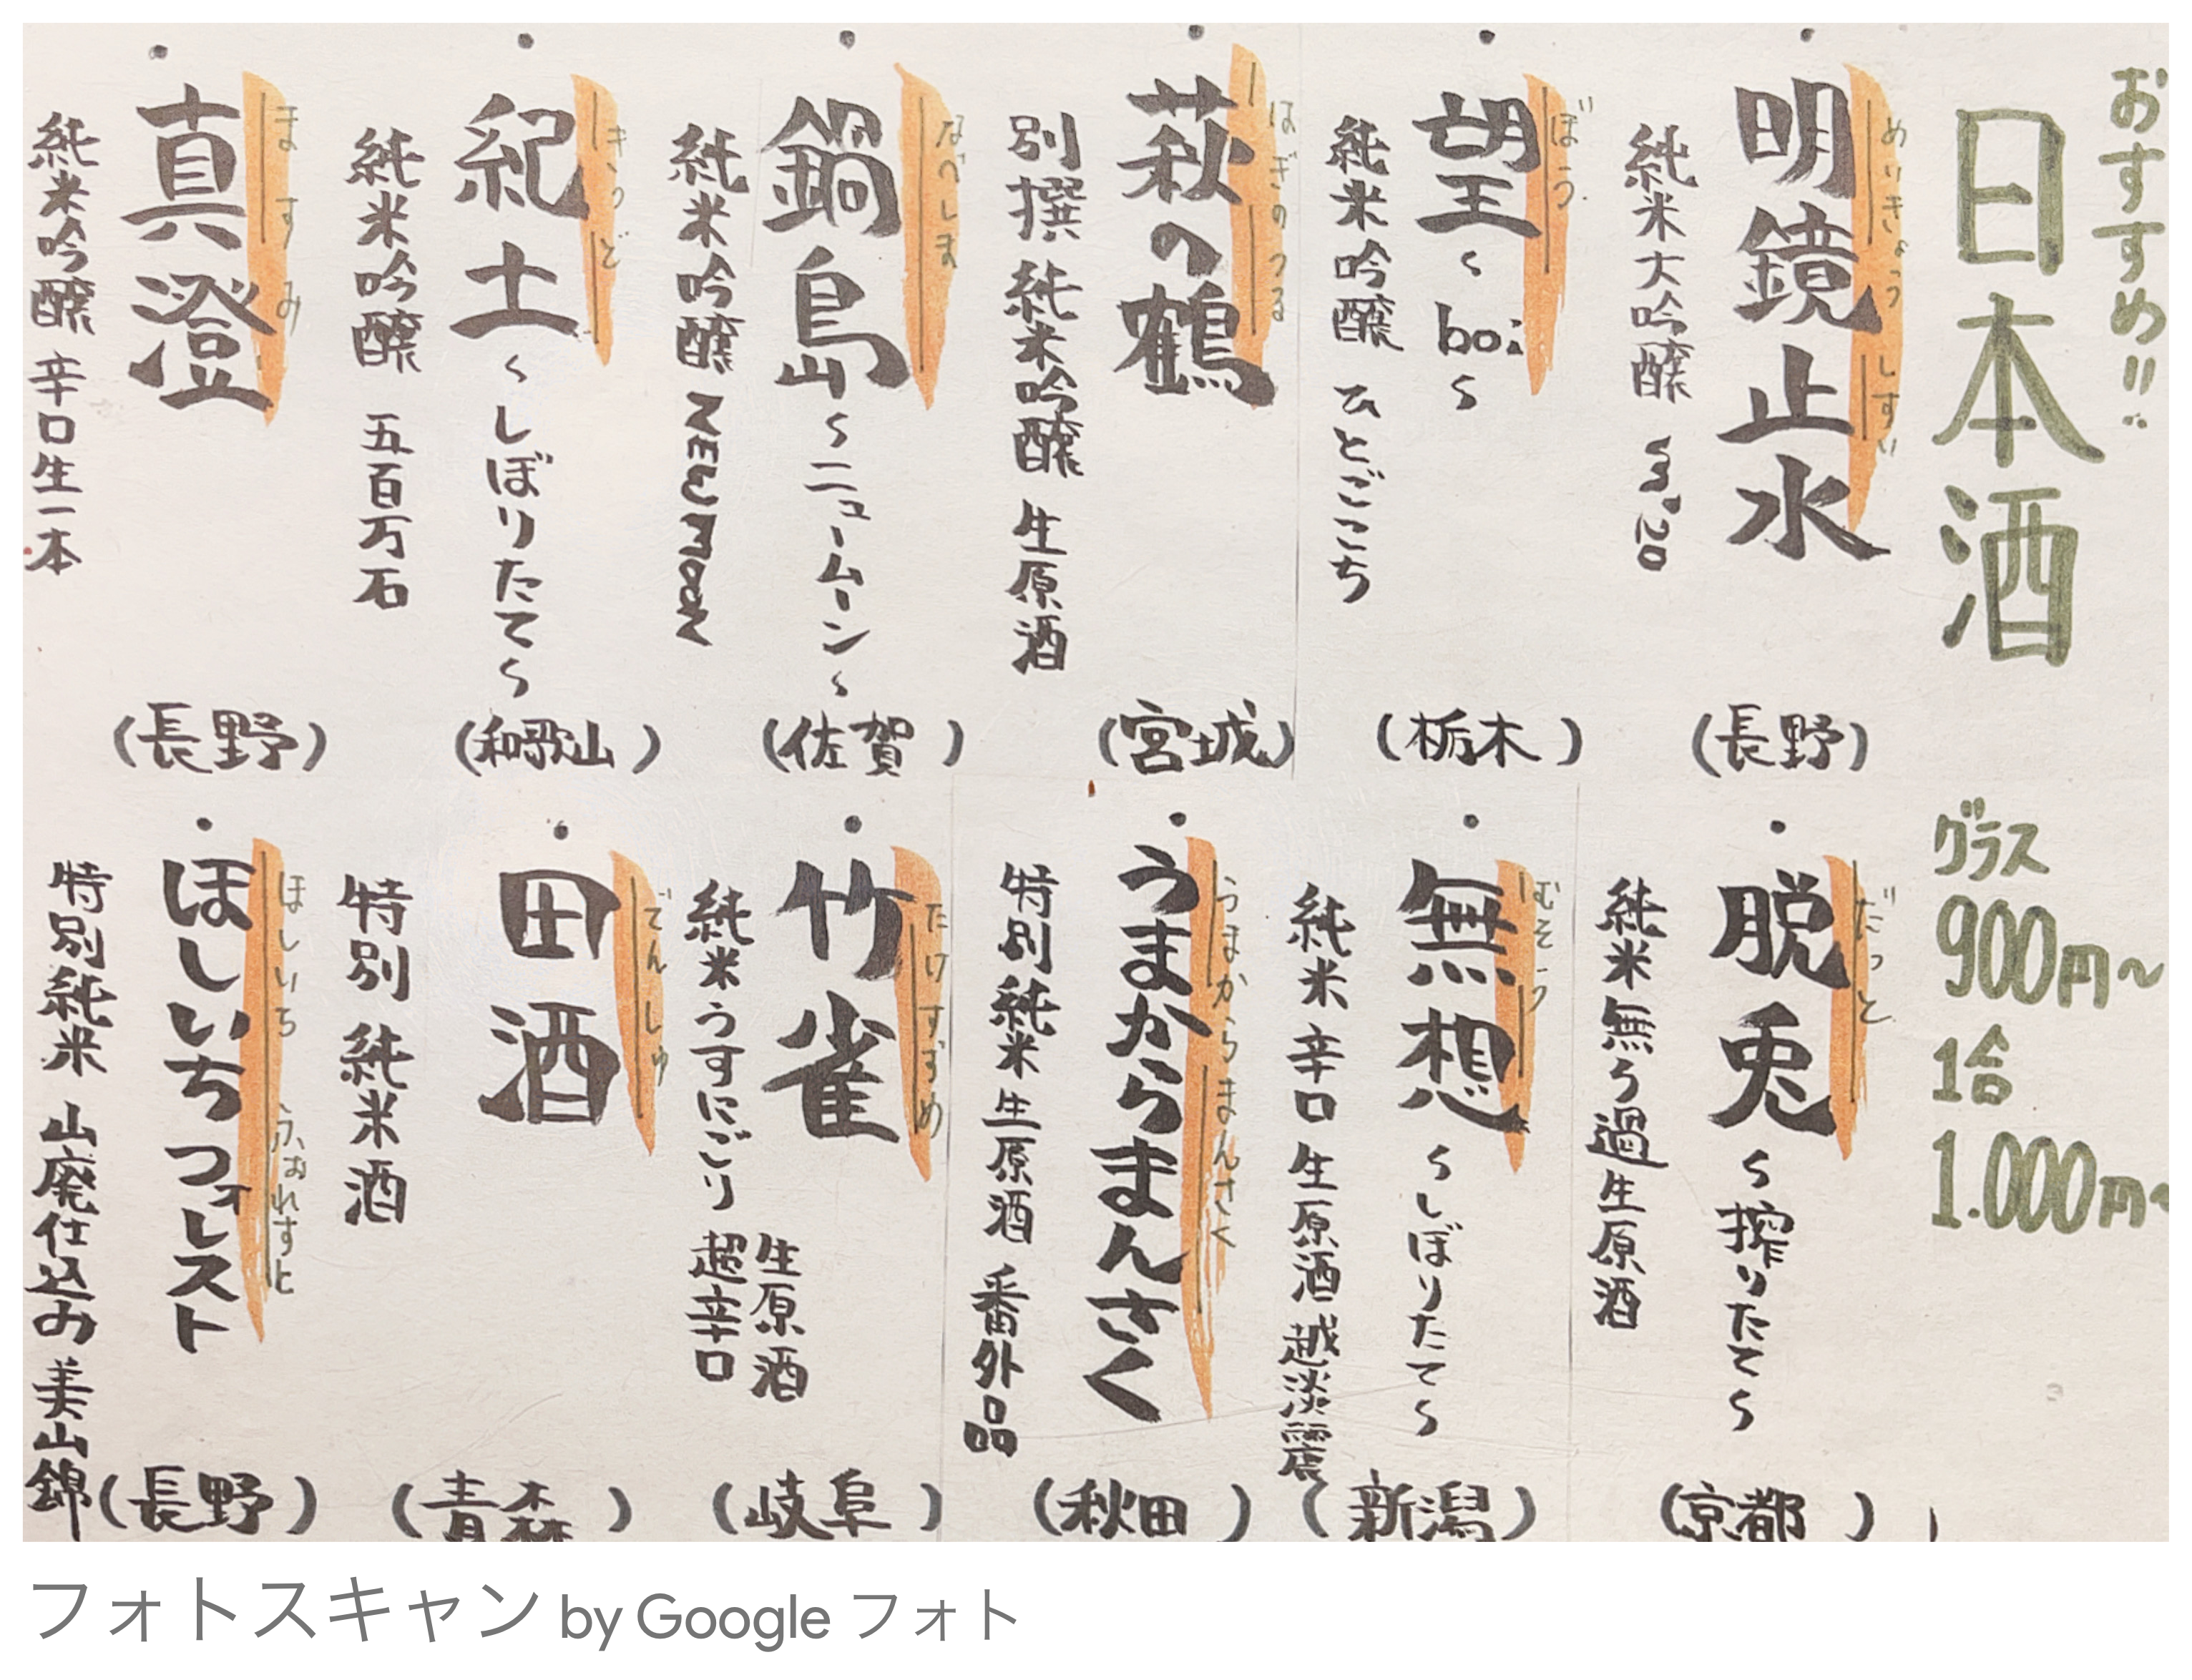 おすすめ!!
日本酒
グラス
900円〜
1合
1.000円〜
・明鏡止水
めいきょうしすい
純米大吟醸
(長野)
・望〜boi〜
ぼう
純米吟醸 ひとごこち
(栃木)
・萩の鶴
はぎのつる
別撰 純米吟醸 生原酒
(宮城)
・鍋島〜ニュームーン〜
なべしま
純米吟醸 New Moon
(佐賀)
・紀土〜しぼりたて〜
きっど
純米吟醸 五百万石
(和歌山)
・真澄
ますみ
純米吟醸 辛口生一本
(長野)
・脱兎〜搾りたて〜
だっと
純米無ろ過生原酒
(京都)
・無想〜しぼりたて〜
むそう
純米 辛口 生原酒 越淡麗
(新潟)
・うまからまんさく
うまからまんさく
特別純米生原酒 番外品
(秋田)
・竹雀
たけすずめ
生原酒
純米うすにごり 超辛口
(岐阜)
・田酒
でんしゅ
特別 純米酒
(青森)
・ほしいちフォレスト
ほしいち ふぉれすと
特別純米 山廃仕込み 美山錦
(長野)
フォトスキャン by Google フォト